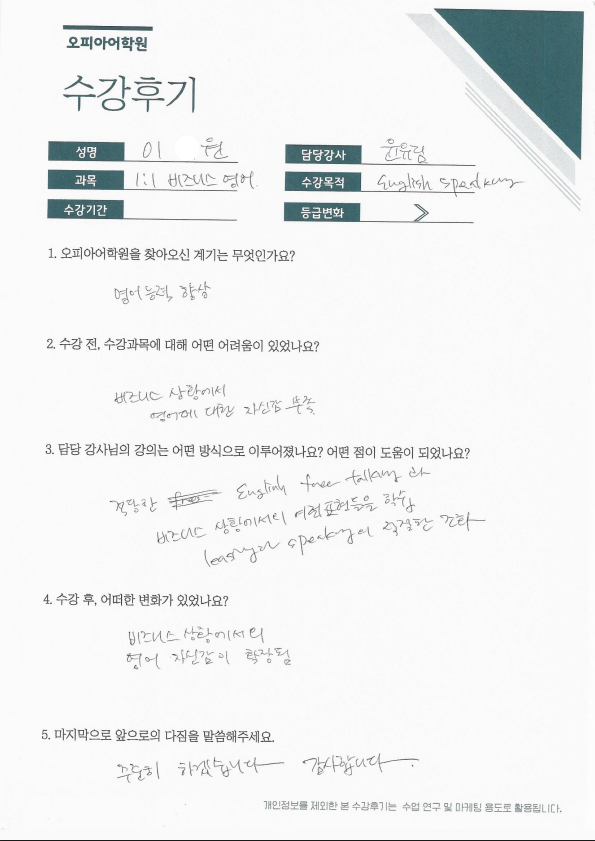 오피아어학원
수강후기
성명 이 원
담당강사 윤유림
과목 1:1 비즈니스 영어.
수강목적 English speaking
수강기간
등급변화 >>
1. 오피아어학원을 찾아오신 계기는 무엇인가요?
영어능력 향상
2. 수강 전, 수강과목에 대해 어떤 어려움이 있었나요?
비즈니스 상황에서
영어에 대한 자신감 부족
3. 담당 강사님의 강의는 어떤 방식으로 이루어졌나요? 어떤 점이 도움이 되었나요?
적당한 English free talking 과
비즈니스 상황에서의 여러 표현들을 학습
speaking의 적절한 조화
4. 수강 후, 어떠한 변화가 있었나요?
비즈니스 상황에서의
영어 자신감이 확장됨
5. 마지막으로 앞으로의 다짐을 말씀해주세요.
꾸준히 하겠습니다 감사합니다.
개인정보를 제외한 본 수강후기는 수업 연구 및 마케팅 용도로 활용됩니다.